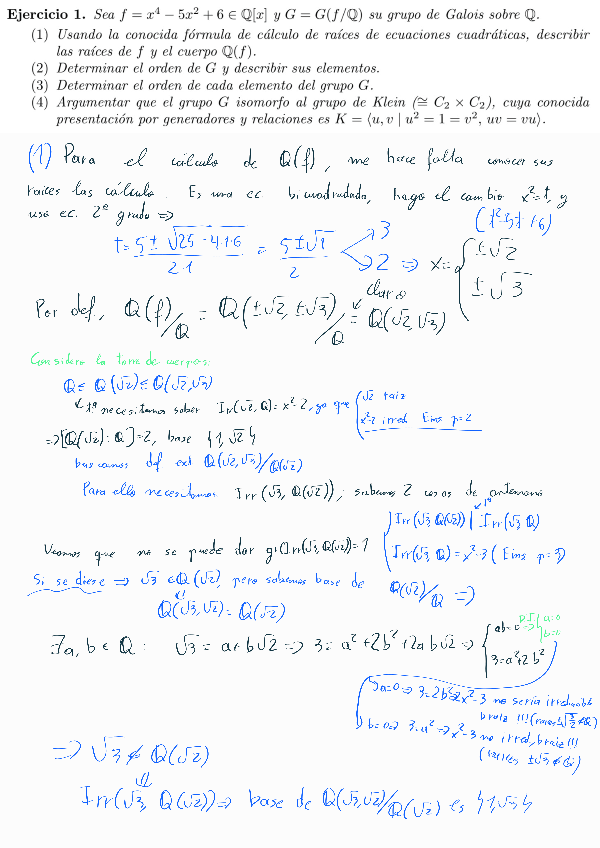 Ejercicio 1. Sea f = x⁴ − 5x² + 6 ∈ ℚ[x] y G = G(f/ℚ) su grupo de Galois sobre ℚ.
(1) Usando la conocida fórmula de cálculo de raíces de ecuaciones cuadráticas, describir
las raíces de f y el cuerpo ℚ(f).
(2) Determinar el orden de G y describir sus elementos.
(3) Determinar el orden de cada elemento del grupo G.
(4) Argumentar que el grupo G isomorfo al grupo de Klein (≅ C₂ × C₂), cuya conocida
presentación por generadores y relaciones es K = ⟨u, v | u² = 1 = v², uv = vu⟩.
(1) Para el cálculo de ℚ(f), me hace falta conocer sus
raíces las cálculo. Es una ec bicuadrada, hago el cambio x²=t, y
uso ec. 2º grado => (t²-5t+6)
t = 5 ± √25 - 4·1·6 / 2·1 = 5 ± √1 / 2 3 2 => x = { ±√2 ±√3
Por def, ℚ(f)/ℚ = ℚ(±√2, ±√3)/ℚ = ℚ(√2, √3) claro
Considero la torre de cuerpos:
ℚ ≤ ℚ(√2) ≤ ℚ(√2, √3)
1º necesitamos saber Irr(√2, ℚ) = x²-2, ya que { √2 raiz
x²-2 irred Eins p=2
=> [ℚ(√2) : ℚ] = 2, base {1, √2}
buscamos def ext ℚ(√2, √3)/ℚ(√2)
Para ello necesitamos Irr(√3, ℚ(√2)); sabemos 2 cosas de antemano
Irr(√3, ℚ(√2)) | Irr(√3, ℚ)
Irr(√3, ℚ) = x²-3 (Eins p=3)
Veamos que no se puede dar gr(Irr(√3, ℚ(√2))) = 1
Si se diese => √3 ∈ ℚ(√2), pero sabemos base de ℚ(√2)/ℚ =>
ℚ(√3, √2) = ℚ(√2)
∃a, b ∈ ℚ : √3 = a + b√2 => 3 = a² + 2b² + 2ab√2 => { ab = 0 => a=0 b=0
3 = a² + 2b²
a=0 => 3 = 2b² => 2x²-3 no sería irreducible
b raiz !!!
b=0 => 3 = a² => x²-3 no irred, b raiz !!!
(raíces ±√3 ∉ ℚ)
=> √3 ∉ ℚ(√2)
Irr(√3, ℚ(√2)) => base de ℚ(√3, √2)/ℚ(√2) es {1, √3}